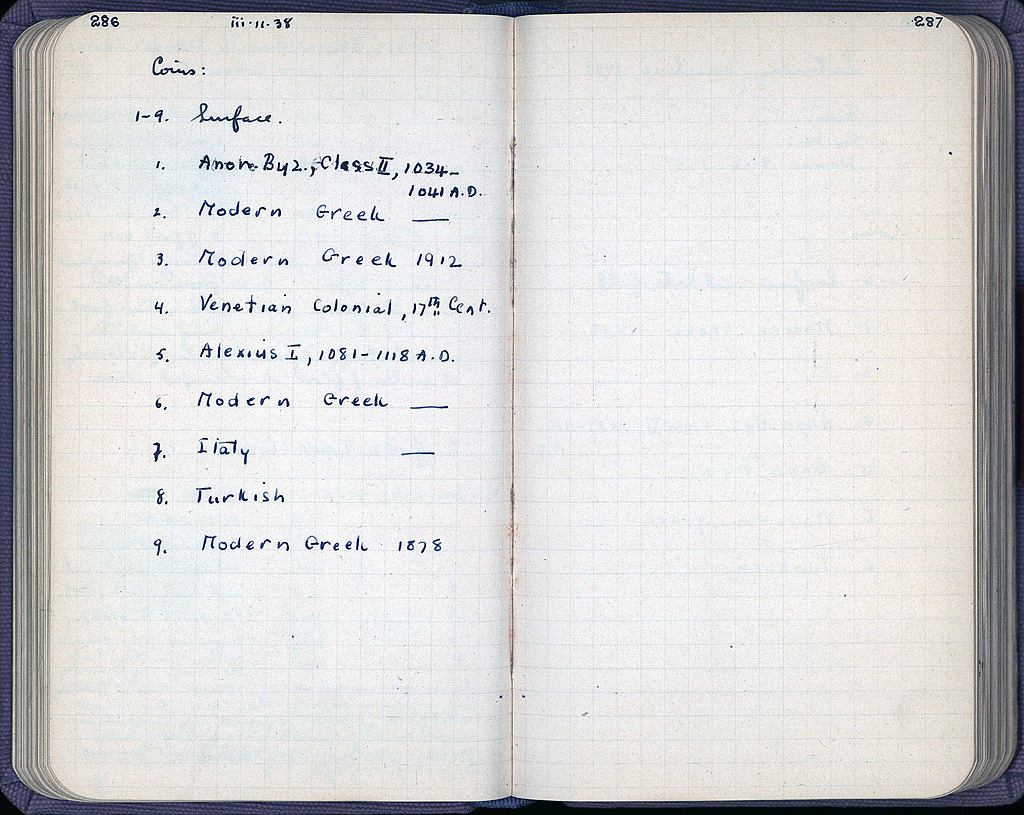 286
iii·11·38
287
Coins:
1-9. Surface.
1. Anon. Byz., Class II, 1034-
1041 A.D.
2. Modern Greek —
3. Modern Greek 1912
4. Venetian Colonial, 17th Cent.
5. Alexius I, 1081-1118 A.D.
6. Modern Greek —
7. Italy —
8. Turkish
9. Modern Greek 1878